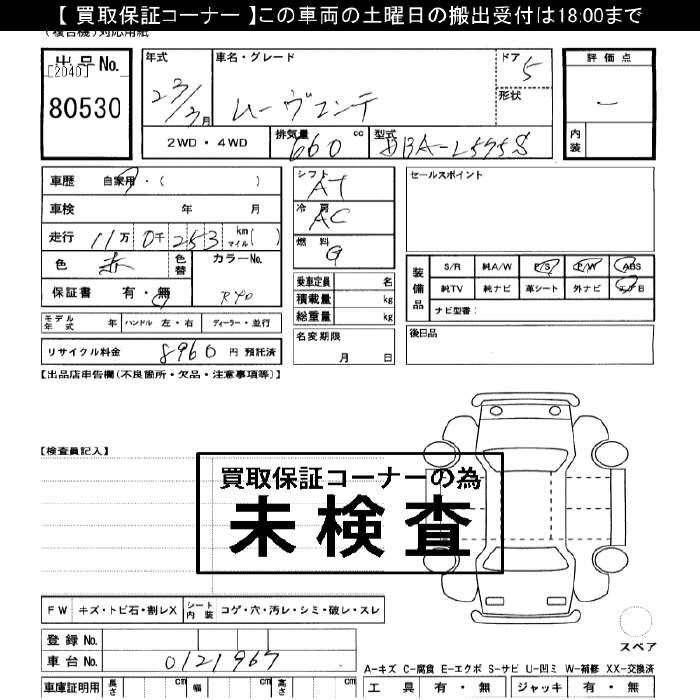 【 買取保証コーナー 】この車両の土曜日の搬出受付は18:00まで
(複合機)対応用紙
出品No.
[2040]
80530
年式
23/3月
車名・グレード
ムーヴコンテ
ドア 5
形状
評価点
内装
2WD・4WD
排気量 660 cc
型式 DBA-L575S
車歴 自家用・( )
車検 年 月
走行 11万 0千 253 km マイル( )
色 赤
色替
カラーNo.
R40
保証書 有・無
モデル年式 年 ハンドル 左・右 ディーラー・並行
リサイクル料金 8960 円 預託済
シフト AT
冷房 AC
燃料 G
乗車定員 名
積載量 kg
総重量 kg
名変期限
月 日
セールスポイント
装備品
S/R 純A/W P/S P/W ABS
純TV 純ナビ 革シート 外ナビ エアB
ナビ型番:
後日品
【出品店申告欄(不良箇所・欠品・注意事項等)】
【検査員記入】
買取保証コーナーの為
未検査
FW キズ・トビ石・割レX シート内装 コゲ・穴・汚レ・シミ・破レ・スレ
登録No.
車台No. 0121967
車庫証明用 長さ cm 幅 cm 高さ cm
スペア
A-キズ C-腐食 E-エクボ S-サビ U-凹ミ W-補修 XX-交換済
工具 有・無 ジャッキ 有・無